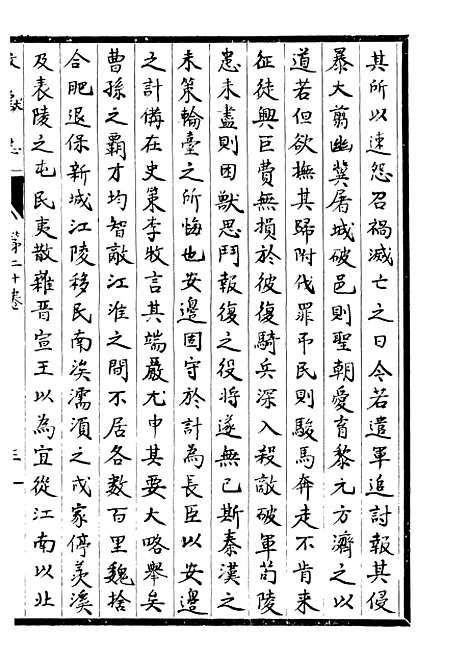 其所以速怨召禍滅亡之日今若遣軍追討報其侵
暴大翦幽冀屠城破邑則聖朝愛育黎元方濟之以
道若但欲撫其歸附伐罪弔民則駿馬奔走不肯來
征徒興巨費無損於彼復騎兵深入殺敵破軍苟陵
患未盡則困獸思鬥報復之役將遂無已斯秦漢之
末策輪臺之所悔也安邊固守於計為長臣以安邊
之計備在史策李牧言其端嚴尤申其要大略舉矣
曹孫之霸才均智敵江淮之間不居各數百里魏捨
合肥退保新城江陵移民南涘濡湏之戍家停羨溪
及表陵之屯民夷散雜晋宣王以為宜從江南以北
文獻志
第二十卷
三一